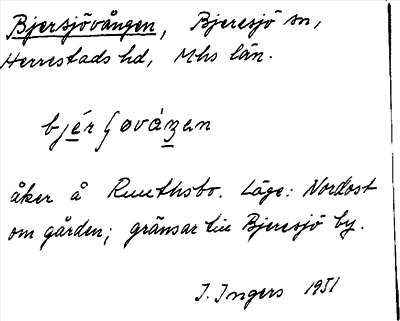 Bjersjövången, Bjeresjö sn,
Herrestads hd, Mhs län.
bjérʃovaŋen
åker å Ruuthsbo. Läge: Nordost
om gården; gränsar till Bjeresjö by.
I. Ingers 1951